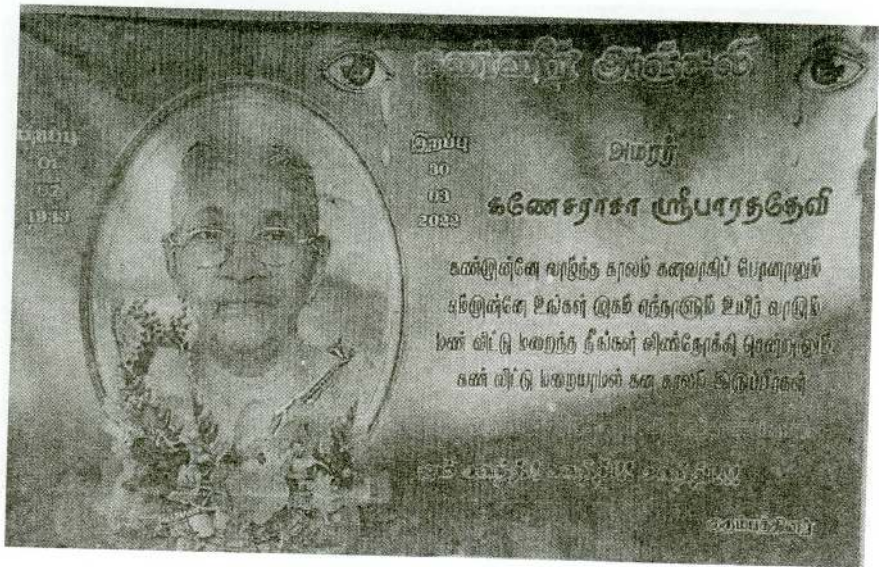 கண்ணீர் அஞ்சலி
பிறப்பு
01
1943
இறப்பு
30
03
2022
அமரர்
கணேசராசா ஸ்ரீபாரததேவி
கண்முன்னே வாழ்ந்த காலம் கனவாகிப் போனாலும்
எம்முன்னே உங்கள் முகம் எந்நாளும் உயிர் வாழும்
மண் விட்டு மறைந்த நீங்கள் விண்நோக்கி சென்றாலும்
கண் விட்டு மறையாமல் கன காலம் இருப்பீர்கள்
குடும்பத்தினர்